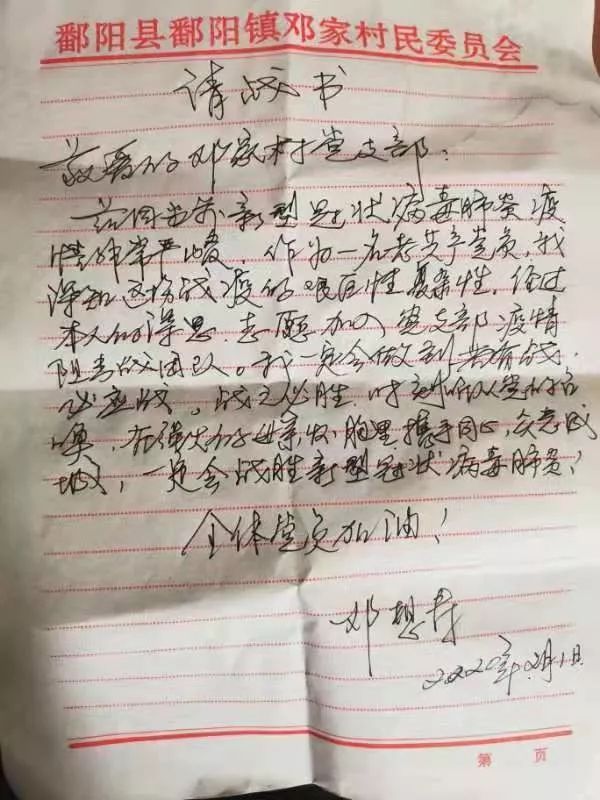 鄱阳县鄱阳镇邓家村民委员会
请战书
敬爱的邓家村党支部:
当前新型冠状病毒肺炎疫
情非常严峻，作为一名老共产党员，我
深知这场战疫的艰巨性复杂性，经过
本人的深思，志愿加入党支部疫情
阻击战团队。我一定会做到若有战，
必应战，战之必胜，时刻听从党的召
唤，在强大的母亲怀胸里携手同心，众志成
城，一定会战胜新型冠状病毒肺炎!
全体党员加油!
邓想
2020年2月1日
第 页